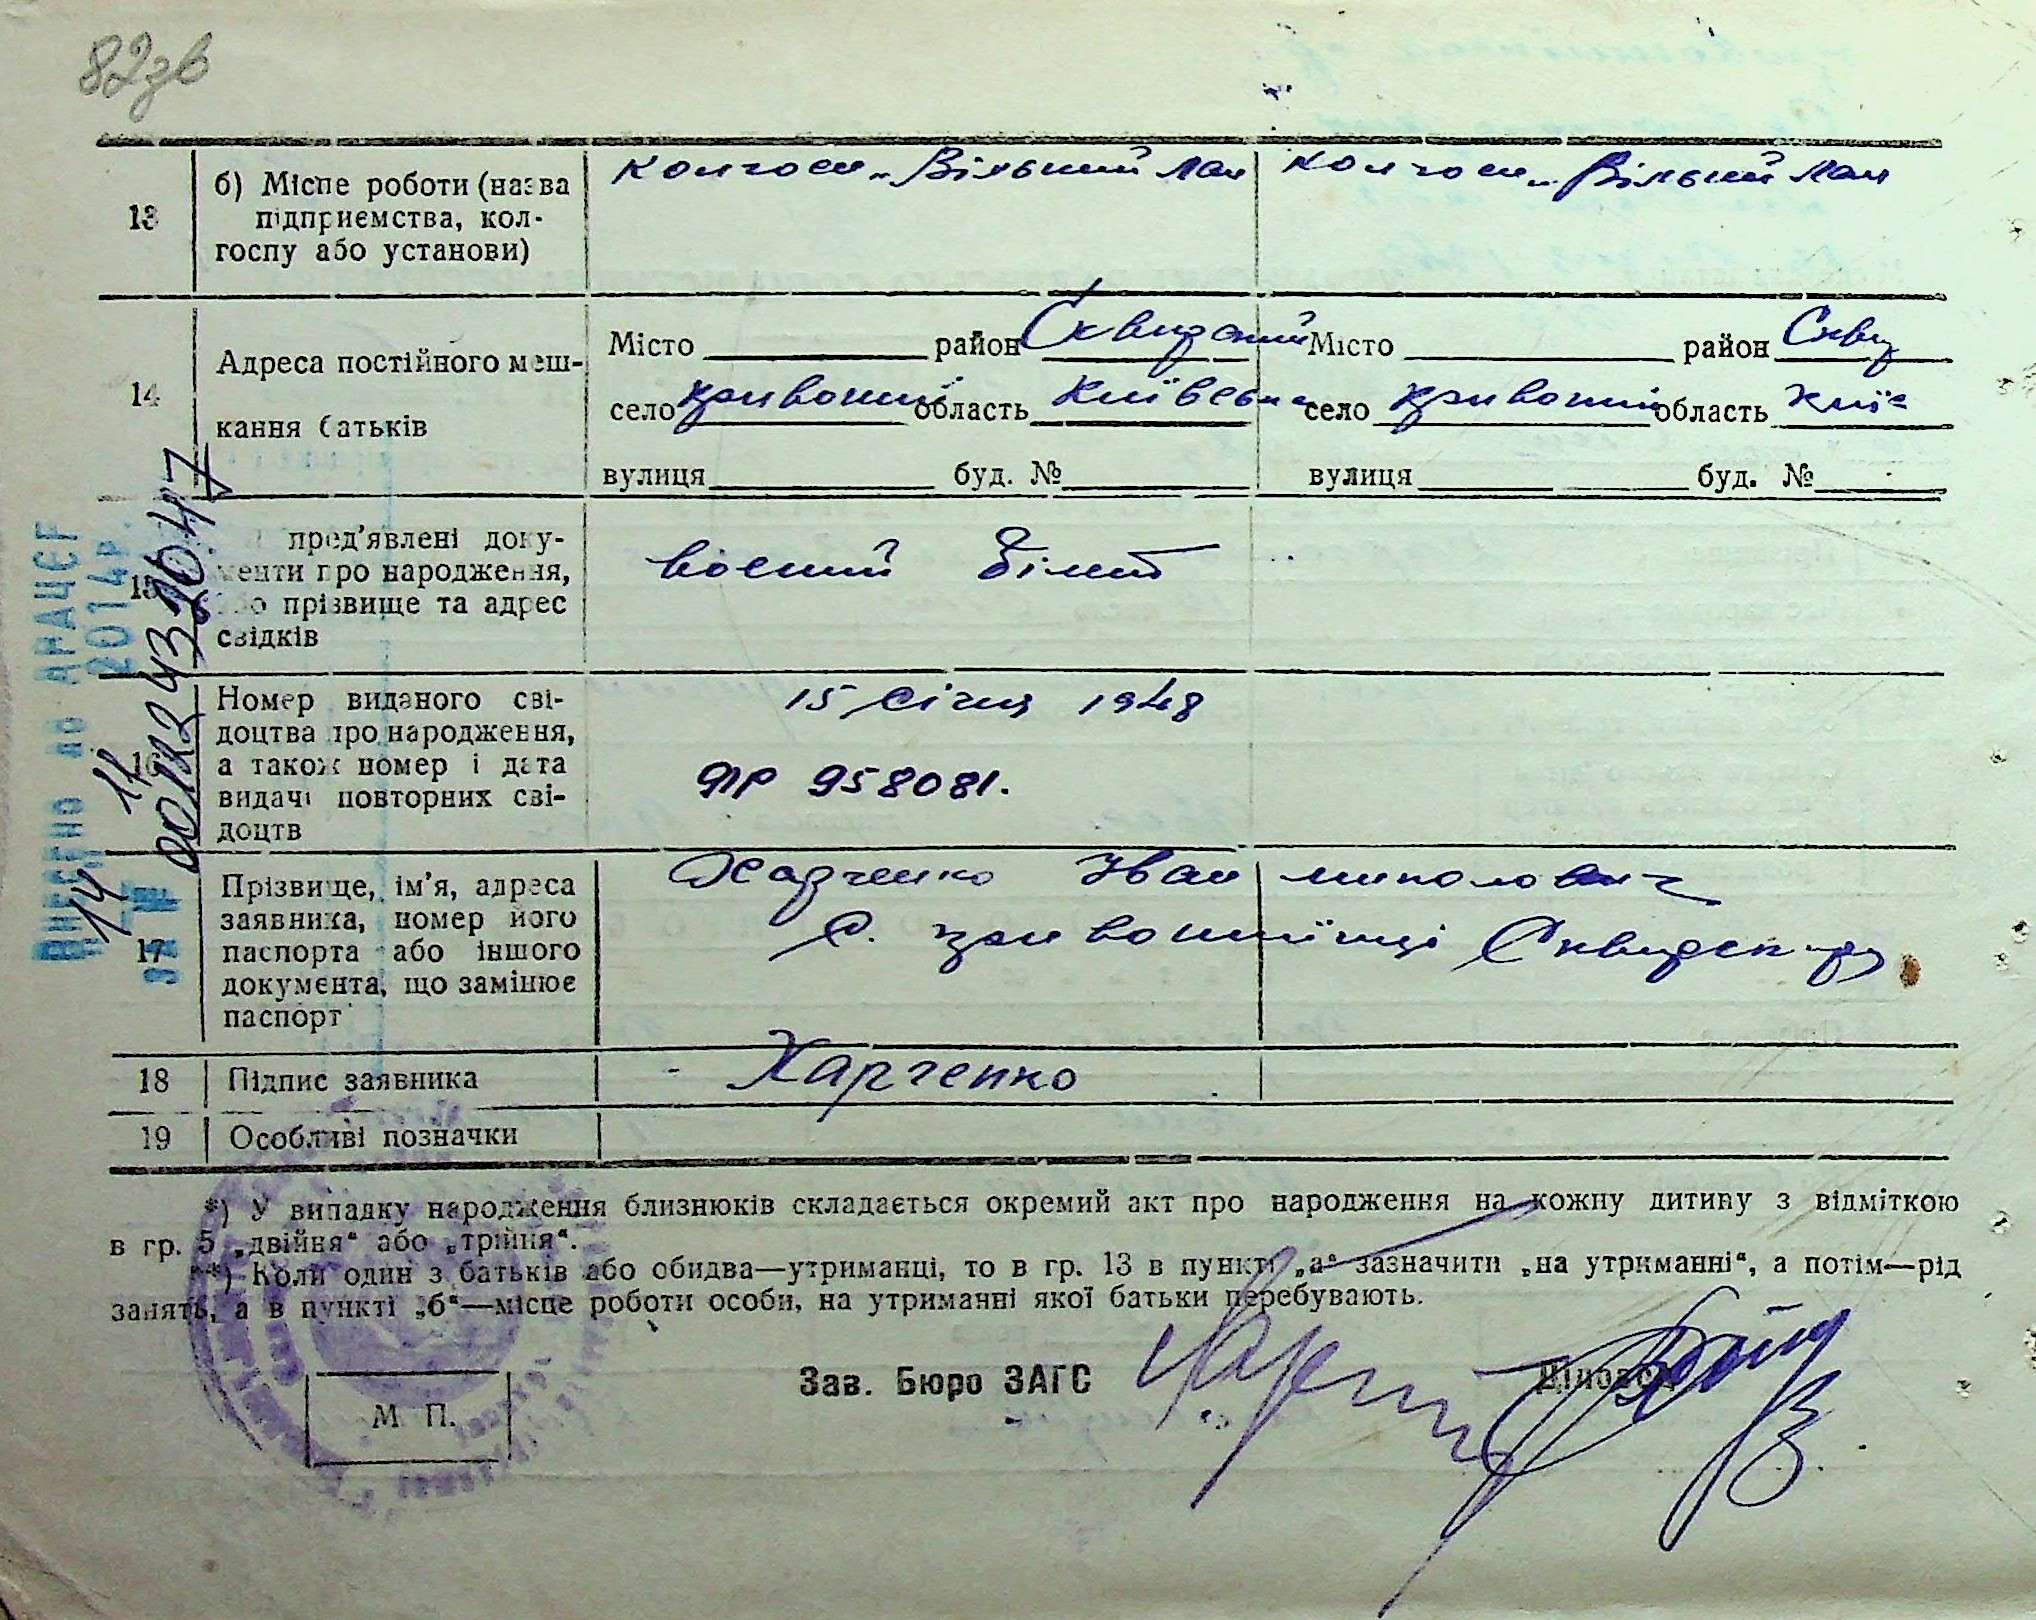 82зв
13 б) Місце роботи (назва підприємства, колгоспу або установи) колгосп „Вільний лан колгосп „Вільний лан
14 Адреса постійного мешкання батьків
Місто район Сквирський Місто район Сквир
село Кривошиї область Київська село Кривошиї область Київ
вулиця буд. № вулиця буд. №
15 пред'явлені документи про народження, або прізвище та адрес свідків воєний білет
16 Номер виданого свідоцтва про народження, а також номер і дата видачі повторних свідоцтв 15 січня 1948
ЯР 958081.
17 Прізвище, ім'я, адреса заявника, номер його паспорта або іншого документа, що замінює паспорт Харченко Іван миколович
с. Кривошиїнці Сквирськ р
18 Підпис заявника Харченко
19 Особливі позначки
*) У випадку народження близнюків складається окремий акт про народження на кожну дитину з відміткою
в гр. 5 „двійня“ або „трійня“.
**) Коли один з батьків або обидва—утриманці, то в гр. 13 в пункті „а“ зазначити „на утриманні“, а потім—рід
занять, а в пункті „б“—місце роботи особи, на утриманні якої батьки перебувають.
Зав. Бюро ЗАГС Діловод
М. П.
ВНЕСЕНО до ДРАЦСГ
14 11 2014р.
за №